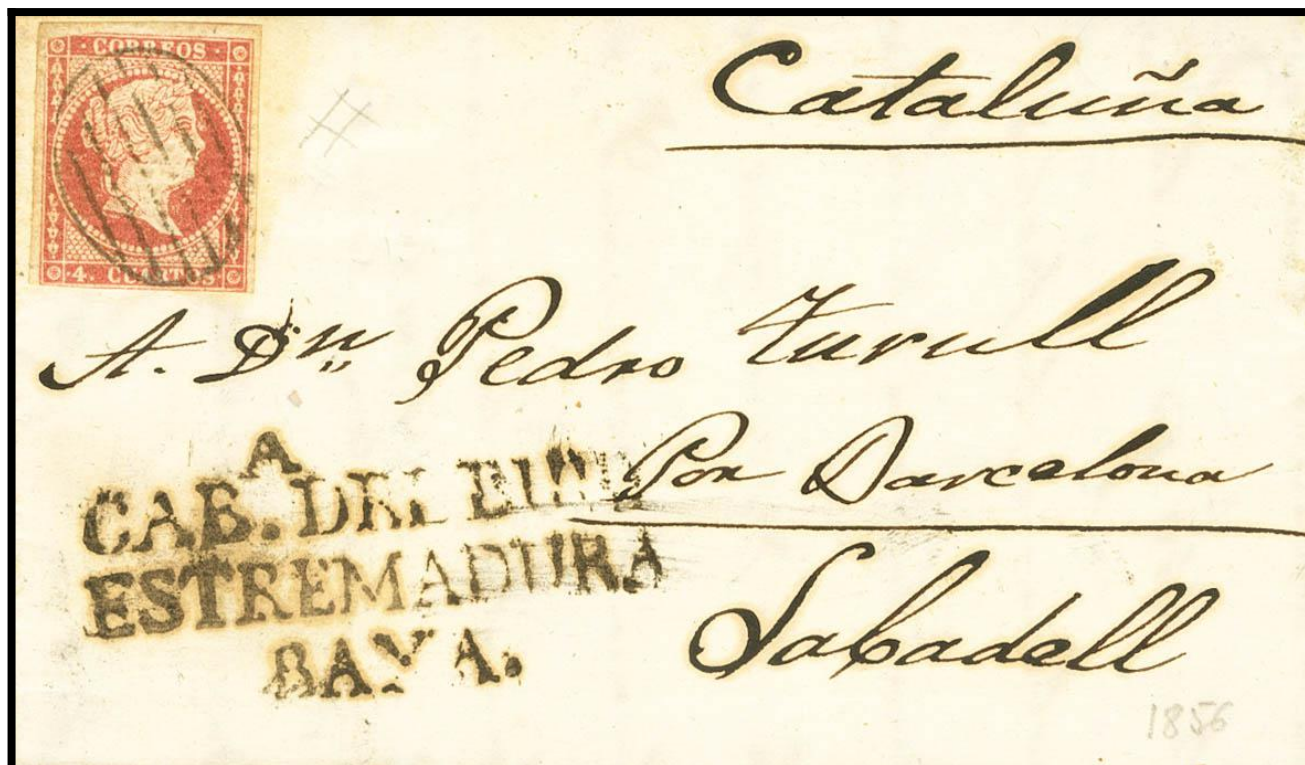 CORREOS
4. CUARTOS
Cataluña
A. Dn. Pedro Turull
A
CAB. DEL
Por Barcelona
ESTREMADURA
BAXA.
Sabadell
1856